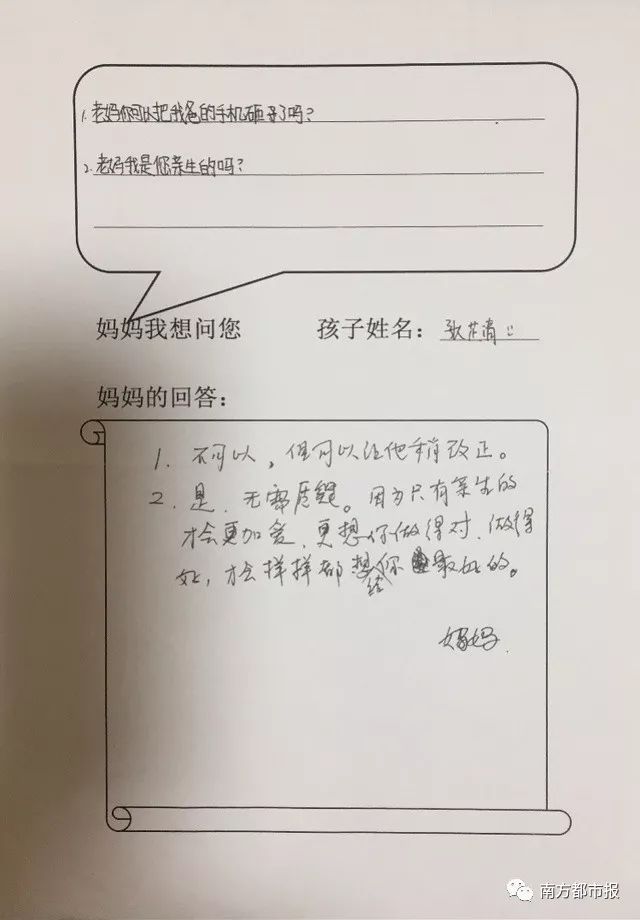 1. 老妈你可以把我爸的手机砸了吗？
2. 老妈我是您亲生的吗？
妈妈我想问您 孩子姓名：
妈妈的回答：
1. 不可以，但可以让他稍改正。
2. 是．无需质疑。因为只有亲生的
才会更加爱．更想你做得对．做得
好，才会样样都想给你最好的。
妈妈
南方都市报